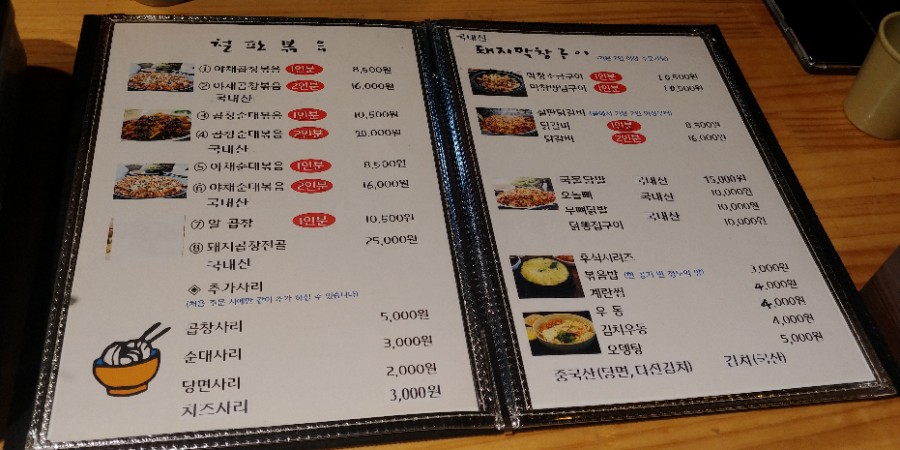 철 판 볶 음
① 야채곱창볶음 1인분 8,500원
② 야채곱창볶음 2인분 16,000원
국내산
③ 곱창순대볶음 1인분 10,500원
④ 곱창순대볶음 2인분 20,000원
국내산
⑤ 야채순대볶음 1인분 8,500원
⑥ 야채순대볶음 2인분 16,000원
국내산
⑦ 알 곱창 1인분 10,500원
⑧ 돼지곱창전골 25,000원
국내산
◈ 추가사리
(처음 주문 시에만 같이 추가 하실 수 있습니다)
곱창사리 5,000원
순대사리 3,000원
당면사리 2,000원
치즈사리 3,000원
국내산
돼지막창구이
막창소금구이 1인분 10,500원
막창양념구이 1인분 10,500원
철판닭갈비
닭갈비 1인분 8,500원
닭갈비 2인분 16,000원
국물닭발 국내산 15,000원
오돌뼈 국내산 10,000원
무뼈닭발 국내산 10,000원
닭똥집구이 10,000원
후식시리즈
볶음밥 3,000원
계란찜 4,000원
우 동 4,000원
김치우동 4,000원
오뎅탕 5,000원
중국산(당면,다진김치) 김치(국산)